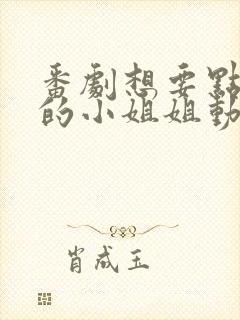 番劇想要點
的小姐姐動
肖成玉